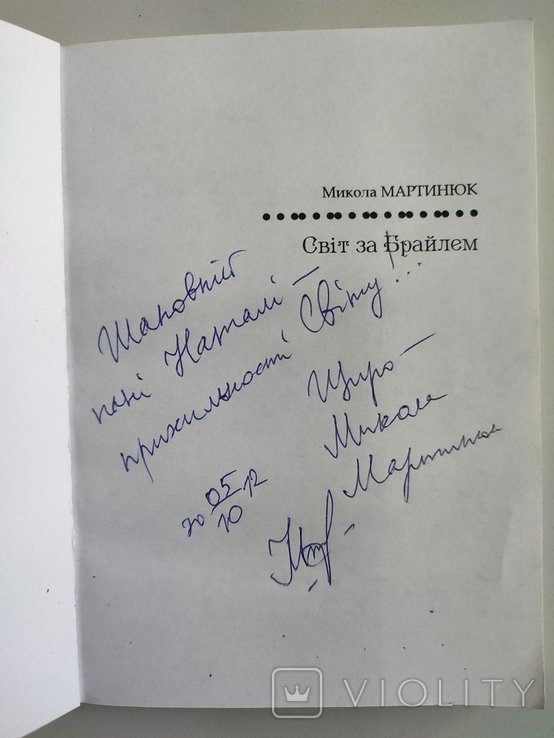 Микола МАРТИНЮК
Світ за Брайлем
Шановній
пані Наталі –
прихильності Світу!...
Щиро –
Микола
Мартинюк
20 05/10 12
VIOLITY